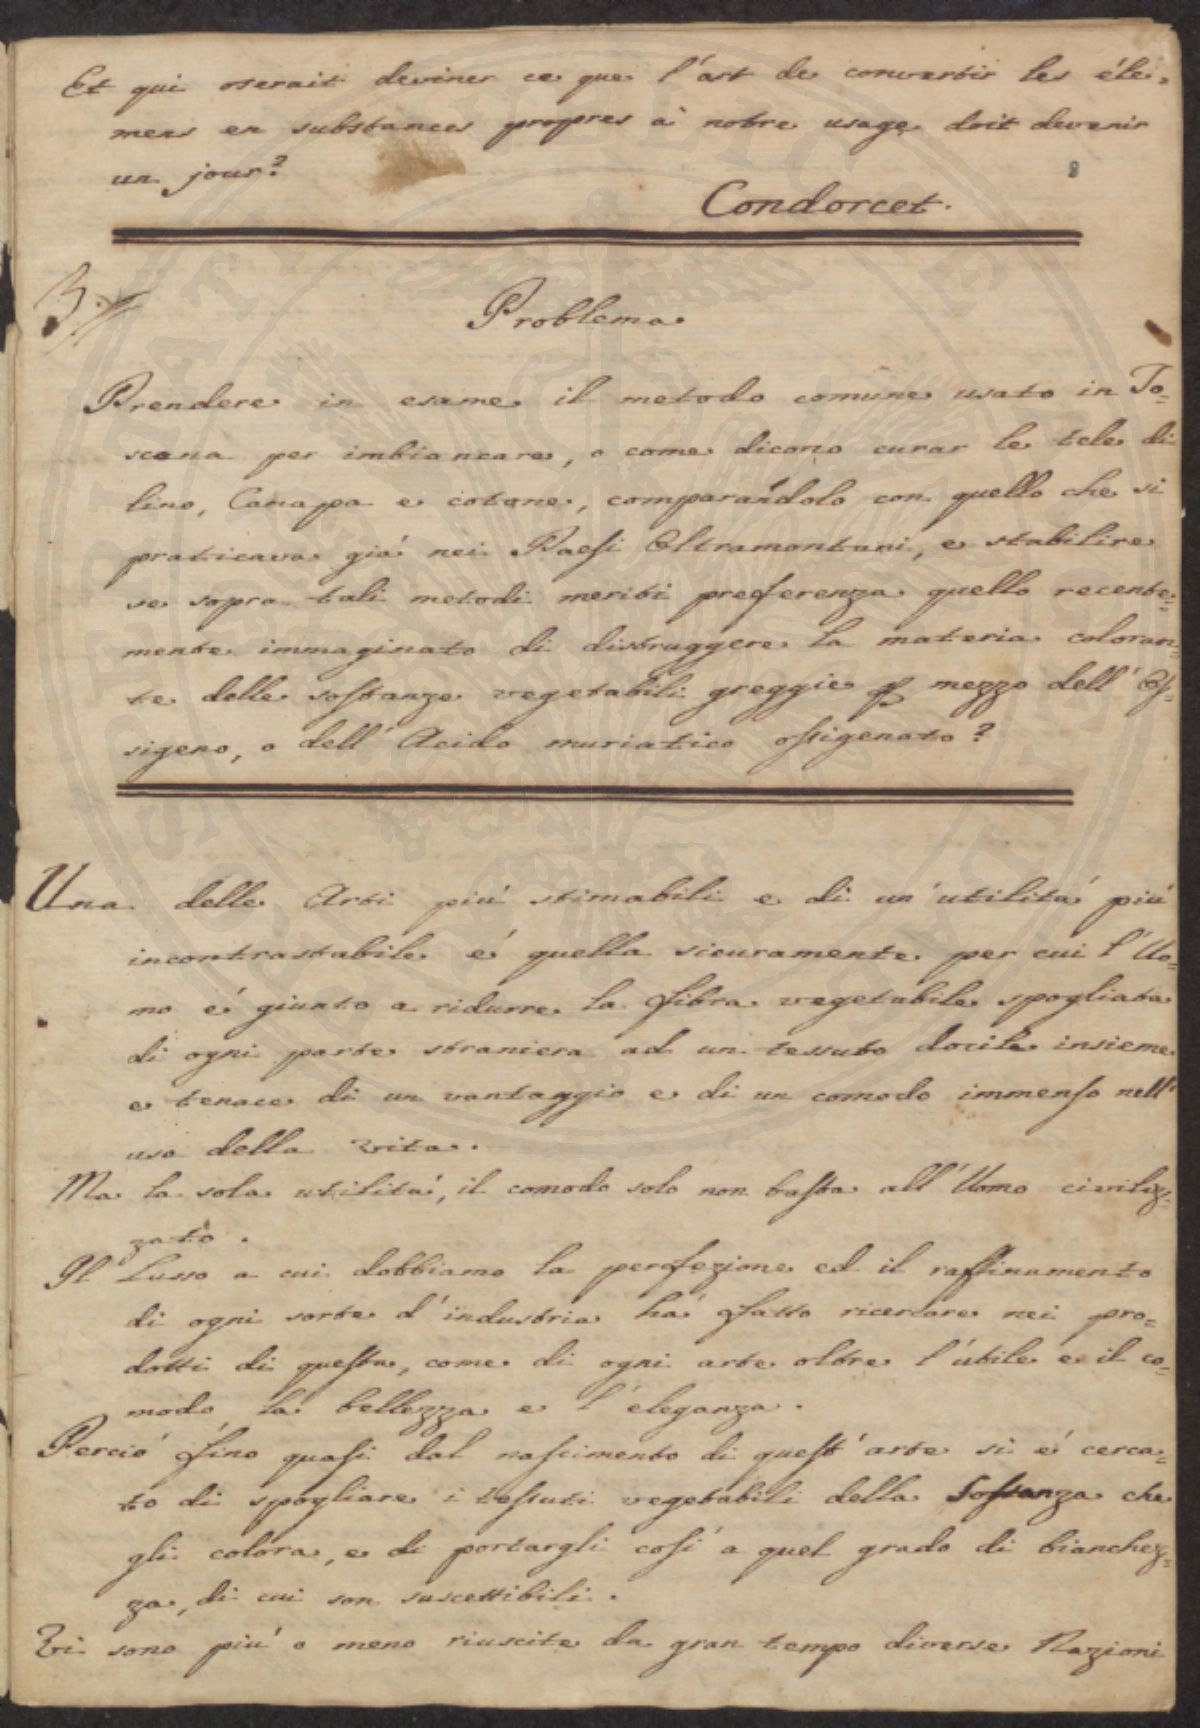 Et qui oserait deviner ce que l'art de convertir les élé=
mens en substances propres à notre usage doit devenir
un jour?
8
Condorcet.
3.
Problema
Prendere in esame il metodo comune usato in To=
scana per imbiancare, o come dicono curar le tele di
lino, Canapa e cotone, comparandolo con quello che si
praticava già nei Paesi Oltramontani, e stabilire
se sopra tali metodi meriti preferenza quello recente=
mente immaginato di distruggere la materia coloran=
te delle sostanze vegetabili greggie p mezzo dell'Os=
sigeno, o dell'Acido muriatico ossigenato?
Una delle Arti più stimabili e di un'utilità più
incontrastabile è quella sicuramente per cui l'Uo=
mo è giunto a ridurre la fibra vegetabile spogliata
di ogni parte straniera ad un tessuto docile insieme
e tenace di un vantaggio e di un comodo immenso nell'
uso della vita.
Ma la sola utilità, il comodo solo non basta all'Uomo civiliz=
zato.
Il Lusso a cui dobbiamo la perfezione ed il raffinamento
di ogni sorte d'industria hà fatto ricercare nei pro=
dotti di questa, come di ogni arte oltre l'utile e il co=
modo la bellezza e l'eleganza.
Perciò fino quasi dal nascimento di quest'arte si è cerca=
to di spogliare i tessuti vegetabili della Sostanza che
gli colora, e di portargli così a quel grado di bianchez=
za, di cui son suscettibili.
Vi sono più o meno riuscite da gran tempo diverse Nazioni